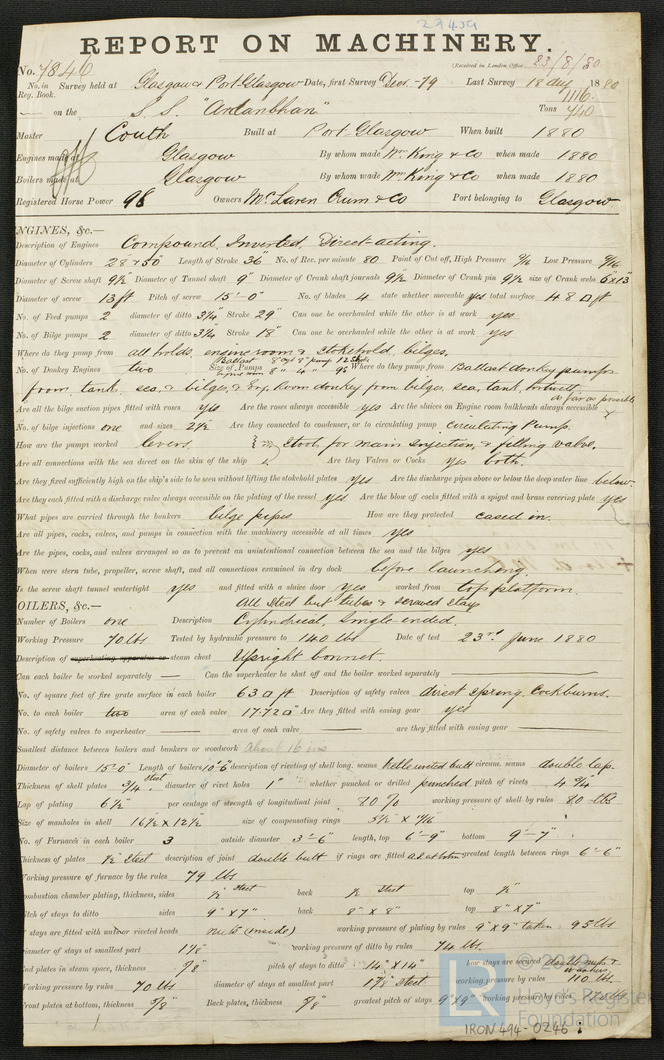 23459
REPORT ON MACHINERY.
No. 7846 (Received in London Office 23/8/80
No. in Reg. Book. Survey held at Glasgow & Port-Glasgow Date, first Survey Decr -79 Last Survey 18 Aug 1880
1116
on the S.S. "Ardanbhan" Tons 740
Master Couth Built at Port Glasgow When built 1880
Engines made at Glasgow By whom made Wm King & Co when made 1880
Boilers made at Glasgow By whom made Wm King & Co when made 1880
Registered Horse Power 98 Owners McLaren Crum & Co Port belonging to Glasgow
ENGINES, &c.—
Description of Engines Compound, Inverted, Direct-acting.
Diameter of Cylinders 28 & 50" Length of Stroke 36" No. of Rev. per minute 80 Point of Cut off, High Pressure Low Pressure 9/16
Diameter of Screw shaft 9½" Diameter of Tunnel shaft 9" Diameter of Crank shaft journals 9½" Diameter of Crank pin 9½ size of Crank webs 6"x13"
Diameter of screw 13 ft Pitch of screw 15'-0" No. of blades 4 state whether moveable yes total surface 48 □ ft
No. of Feed pumps 2 diameter of ditto 3¾ Stroke 29" Can one be overhauled while the other is at work yes
No. of Bilge pumps 2 diameter of ditto 3¾ Stroke 18" Can one be overhauled while the other is at work yes
Where do they pump from all holds, engine room & stokehold bilges.
No. of Donkey Engines two Size of Pumps Ballast Where do they pump from Ballast donkey pumps
from tank, sea, & bilges, & Eng. Room donkey from bilges, sea, tank, hotwell
as far as possible
Are all the bilge suction pipes fitted with roses yes Are the roses always accessible yes Are the sluices on Engine room bulkheads always accessible
No. of bilge injections one and sizes 2½ Are they connected to condenser, or to circulating pump circulating Pump.
How are the pumps worked levers.
Are all connections with the sea direct on the skin of the ship Are they Valves or Cocks both.
Are they fixed sufficiently high on the ship's side to be seen without lifting the stokehold plates yes Are the discharge pipes above or below the deep water line below.
Are they each fitted with a discharge valve always accessible on the plating of the vessel yes Are the blow off cocks fitted with a spigot and brass covering plate yes
What pipes are carried through the bunkers bilge pipes How are they protected cased in.
Are all pipes, cocks, valves, and pumps in connection with the machinery accessible at all times yes
Are the pipes, cocks, and valves arranged so as to prevent an unintentional connection between the sea and the bilges yes
When were stern tube, propeller, screw shaft, and all connections examined in dry dock before launching.
Is the screw shaft tunnel watertight yes and fitted with a sluice door yes worked from top platform.
BOILERS, &c.— All Steel but tubes & screwed stays
Number of Boilers one Description Cylindrical, single-ended.
Working Pressure 70 lbs Tested by hydraulic pressure to 140 lbs Date of test 23rd June 1880
Description of superheating apparatus or steam chest Upright bonnet.
Can each boiler be worked separately — Can the superheater be shut off and the boiler worked separately —
No. of square feet of fire grate surface in each boiler 63 □ ft Description of safety valves direct Spring Cockburns.
No. to each boiler two area of each valve 17.72 □" Are they fitted with easing gear yes
No. of safety valves to superheater — area of each valve — are they fitted with easing gear —
Smallest distance between boilers and bunkers or woodwork about 16 ins
Diameter of boilers 15'-0" Length of boilers 10'-6" description of riveting of shell long. seams treble riveted butt circum. seams double lap.
Thickness of shell plates ¾" steel diameter of rivet holes 1" whether punched or drilled punched pitch of rivets 4¾"
Lap of plating 6½" per centage of strength of longitudinal joint 80% working pressure of shell by rules 80 lbs
Size of manholes in shell 16½ x 12½ size of compensating rings 5½" x 7/16
No. of Furnaces in each boiler 3 outside diameter 3'-6" length, top 6'-9" bottom 9'-7"
Thickness of plates ½" steel description of joint double butt if rings are fitted greatest length between rings 6'-6"
Working pressure of furnace by the rules 79 lbs
Combustion chamber plating, thickness, sides ½" steel back ½" steel top ½"
Pitch of stays to ditto sides 9" x 7" back 8" x 8" top 8" x 7"
If stays are fitted with nuts or riveted heads nuts (inside) working pressure of plating by rules 9" x 9" taken 95 lbs
Diameter of stays at smallest part 1⅛" working pressure of ditto by rules 74 lbs.
End plates in steam space, thickness ⅞" pitch of stays to ditto 14" x 14" how stays are secured double nuts & washers
Working pressure by rules 70 lbs diameter of stays at smallest part 1⅞" steel working pressure by rules 110 lbs.
Front plates at bottom, thickness ⅝" Back plates, thickness ⅝" greatest pitch of stays 9" x 9" working pressure by rules
© 20
LR
Lloyd's Register
Foundation
IRON494-0246